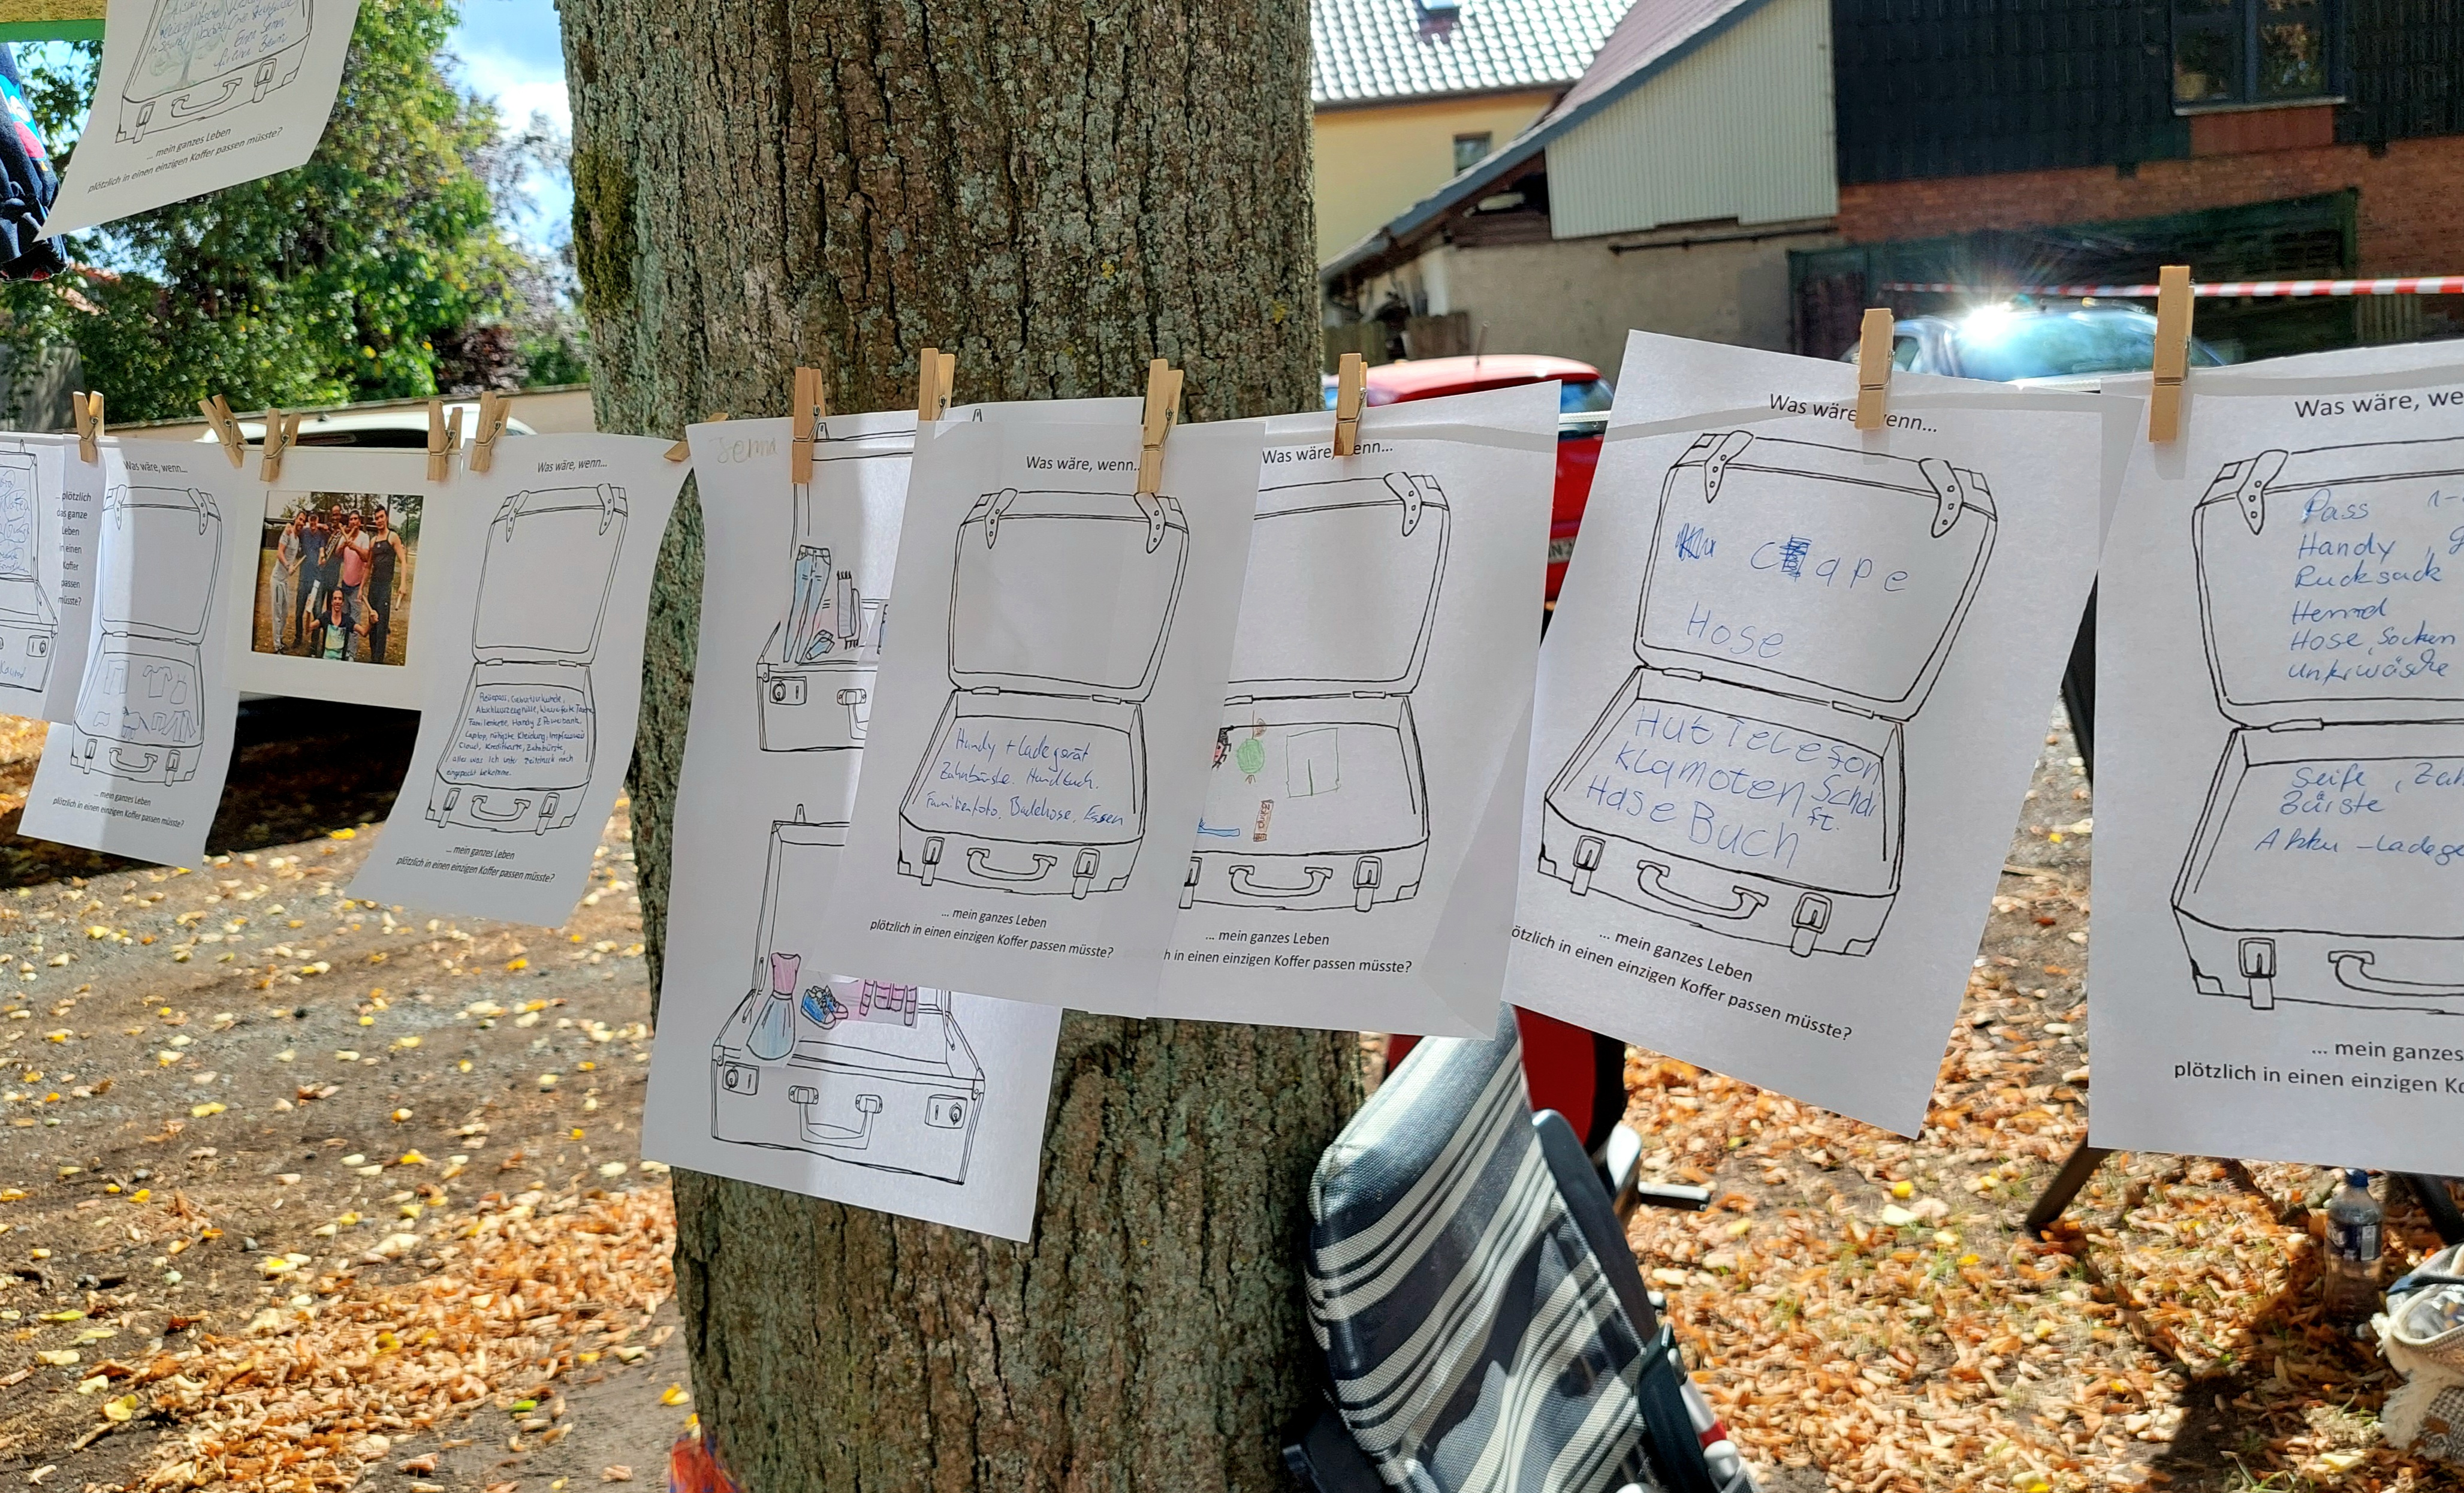 ... mein ganzes Leben
plötzlich in einen einzigen Koffer passen müsste?
... plötzlich
das ganze
Leben
in einen
Koffer
passen
müsste?
Was wäre, wenn...
... mein ganzes Leben
plötzlich in einen einzigen Koffer passen müsste?
Was wäre, wenn...
Reisepass, Geburtsurkunde,
Abschlusszeugnisse,
Familienkette, Handy & Powerbank
Laptop, nötigste Kleidung, Impfausweis
Cloud, Kreditkarte, Zahnbürste,
alles was ich unter Zeitdruck noch
eingepackt bekomme.
... mein ganzes Leben
plötzlich in einen einzigen Koffer passen müsste?
Was wäre, wenn...
Handy + Ladegerät
Zahnbürste. Handtuch.
Familienfoto. Badehose. Essen
... mein ganzes Leben
plötzlich in einen einzigen Koffer passen müsste?
Was wäre, wenn...
... mein ganzes Leben
h in einen einzigen Koffer passen müsste?
Was wäre, wenn...
Hose
Hut Telefon
Klamoten Schal
Hase Buch
... mein ganzes Leben
ötzlich in einen einzigen Koffer passen müsste?
Was wäre, we
Pass
Handy,
Rucksack
Hemd
Hose, Socken
Unterwäsche
Seife, Zah
Bürste
Akku - Ladege
... mein ganzes
plötzlich in einen einzigen Ko